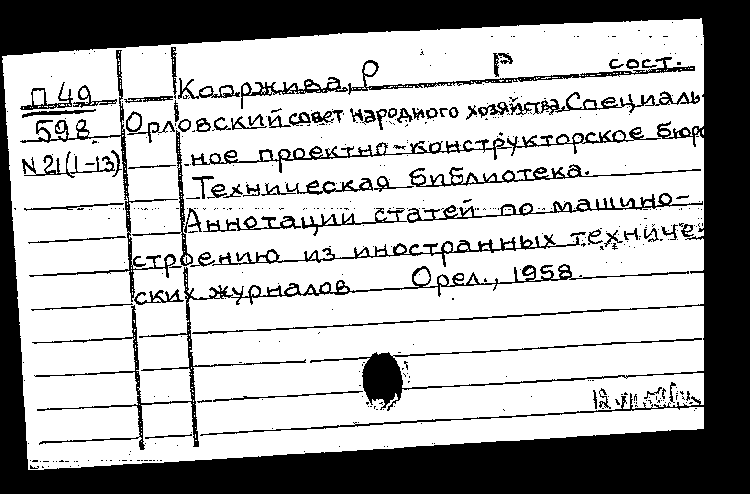 П 49
598
N 21(1-13)
Кооржива, Р Р сост.
Орловский совет народного хозяйства. Специаль-
ное проектно-конструкторское бюро
Техническая библиотека.
Аннотации статей по машино-
строению из иностранных техниче-
ских журналов Орел., 1958.
12 VII 58